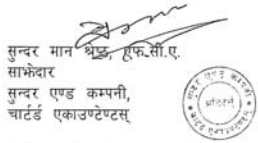 सुन्दर मान श्रेष्ठ, एफ.सी.ए.
साझेदार
सुन्दर एण्ड कम्पनी,
चार्टर्ड एकाउण्टेण्टस्